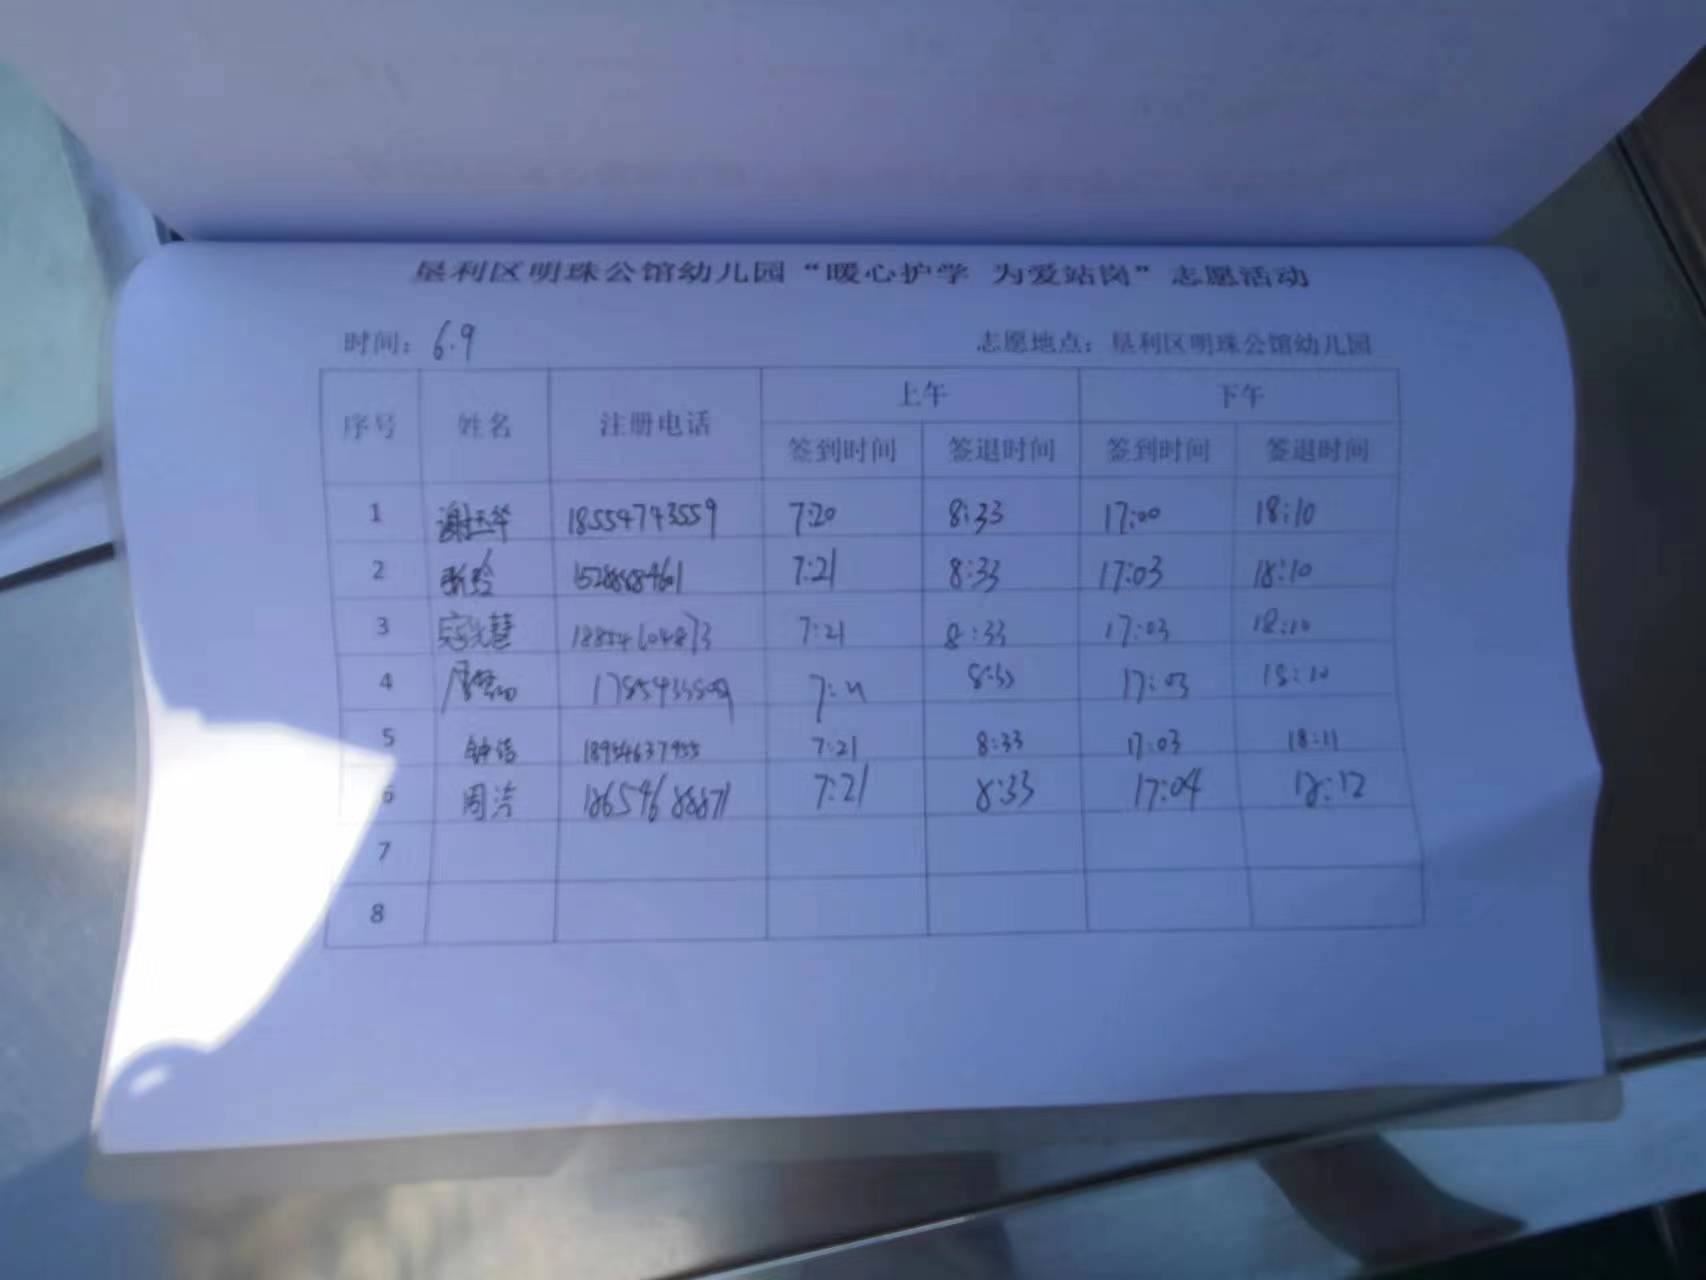 垦利区明珠公馆幼儿园“暖心护学 为爱站岗”志愿活动
时间：6.9 志愿地点：垦利区明珠公馆幼儿园
序号 姓名 注册电话 上午 下午
签到时间 签退时间 签到时间 签退时间
1 谢玉华 18554743559 7:20 8:33 17:00 18:10
2 7:21 8:33 17:03 18:10
3 18854604873 7:21 8:33 17:03 18:10
4 7:21 8:33 17:03 18:10
5 钟洁 18954637955 7:21 8:33 17:03 18:11
6 周洁 18654688871 7:21 8:33 17:04 18:12
7
8